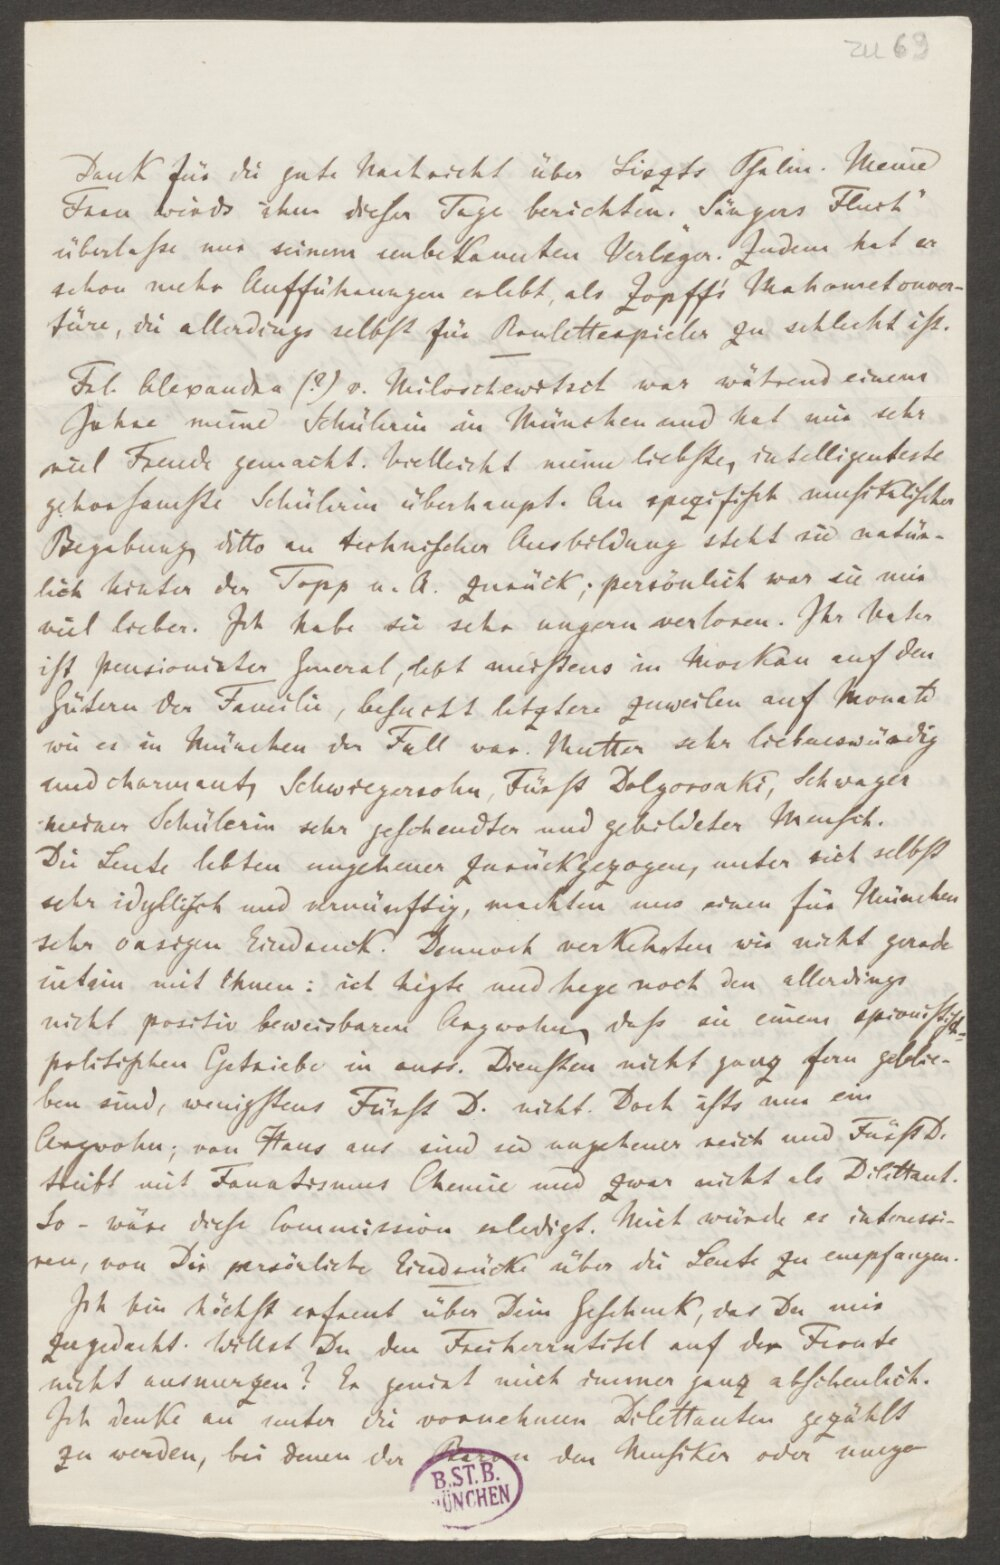 zu 69
Dank für die gute Nachricht über Liszts Psalm. Meine
Frau wirds ihm dieser Tage berichten. Sängers Fluch"
überlasse nur seinem unbekannten Verleger. Zudem hat er
schon mehr Aufführungen erlebt, als Zopff's Mahometouver-
türe, die allerdings selbst für Roulettespieler zu schlecht ist.
Frl. Alexandra (?) v. Miloschewitsch war während einem
Jahre meine Schülerin in München und hat mir sehr
viel Freude gemacht. Vielleicht meine liebste, intelligenteste
gehorsamste Schülerin überhaupt. An spezifisch musikalischer
Begabung, ditto an technischer Ausbildung steht sie natür-
lich hinter der Topp u. A. zurück; persönlich war sie mir
viel lieber. Ich habe sie sehr ungern verloren. Ihr Vater
ist pensionirter General, lebt meistens in Moskau auf den
Gütern der Familie, besucht letztere zuweilen auf Monate
wie es in München der Fall war. Mutter sehr liebenswürdig
und charmant, Schwiegersohn, Fürst Dolgorouki, Schwager
meiner Schülerin sehr gescheudter und gebildeter Mensch.
Die Leute lebten ungeheuer zurückgezogen, unter sich selbst
sehr idyllisch und vernünftig, machten uns einen für München
sehr oasigen Eindruck. Dennoch verkehrten wir nicht gerade
intim mit Ihnen: ich hegte und hege noch den allerdings
nicht positiv beweisbaren Argwohn, daß sie einem spionistisch-
politischen Getriebe in russ. Diensten nicht ganz fern geblie-
ben sind, wenigstens Fürst D. nicht. Doch ists nur ein
Argwohn; von Haus aus sind sie ungeheuer reich und Fürst D.
treibt mit Fanatismus Chemie und zwar nicht als Dilettant.
So - wäre diese Commission erledigt. Mich würde es interessi-
ren, von Dir persönliche Eindrücke über die Leute zu empfangen.
Ich bin höchst erfreut über Dein Geschenk, das Du mir
zugedacht. Willst Du den Freiherrntitel auf der Fronte
nicht ausmerzen? Er genirt mich immer ganz abscheulich.
Ich denke an unter die vornehmen Dilettanten gezählt
zu werden, bei denen der Baron den Musiker oder umge
B.ST.B.
MÜNCHEN